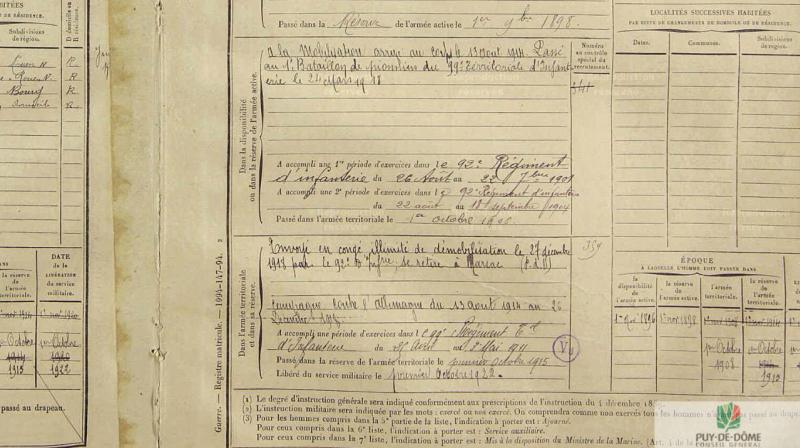 ABITÉES
D domicile ou
R résidence.
Subdivisions
de région.
R
R
Bourg R
R
DATE
de la
LIBÉRATION
du service
militaire.
la réserve
de l'armée
territoriale.
1er nov. 1914 1er nov. 1920
Octobre Octobre
1914 1920
1915 1922
passé au drapeau.
Guerre. — Registre matricule. — 1094-147-94. 2
Passé dans la Réserve de l'armée active le 1er 9bre 1898.
Dans la disponibilité
ou dans la réserve de l'armée active.
à la Mobilisation arrivé au corps le 13 août 1914. Passé
au 1er Bataillon de pionniers du 99e Territoriale d'Infant-
erie le 24 Mars 1918
A accompli une 1re période d'exercices dans le 92e Régiment
d'infanterie du 26 Août au 22 7bre 1901
A accompli une 2e période d'exercices dans le 92e Régiment d'infanterie
du 22 août au 18 septembre 1904
Passé dans l'armée territoriale le 1er octobre 1908.
Numéro
au contrôle
spécial du
recrutement.
541
Dans l'armée territoriale
et dans sa réserve.
Envoyé en congé illimité de démobilisation le 27 décembre
1918 par le 92e d'Infrie, se retire à Marsac (P.d.D)
Campagne contre l'Allemagne du 13 août 1914 au 26
Décembre 1918
A accompli une période d'exercices dans le 99e Régiment Tal
d'Infanterie du Avril au 5 Mai 1911
Passé dans la réserve de l'armée territoriale le premier Octobre 1915
Libéré du service militaire le premier Octobre 1922.
359
Vu
LOCALITÉS SUCCESSIVES HABITÉES
PAR SUITE DE CHANGEMENTS DE DOMICILE OU DE RÉSIDENCE.
Dates. Communes. Subdivisions
de région.
ÉPOQUE
À LAQUELLE L'HOMME DOIT PASSER DANS
la
disponibilité
de l'armée active.
la réserve
de
l'armée active.
l'armée
territoriale.
la réserve
de
l'armée
territoriale.
1er Nov 1896 1er nov 1898 1er nov 1908
Octobre Octobre
1908
1915
(1) Le degré d'instruction générale sera indiqué conformément aux prescriptions de l'instruction du 4 décembre
(2) L'instruction militaire sera indiquée par les mots : exercé ou non exercé. On comprendra comme non exercés tous les hommes
(3) Pour les hommes compris dans la 5e partie de la liste, l'indication à porter est : Ajourné.
Pour ceux compris dans la 6e liste, l'indication à porter est : Service auxiliaire.
Pour ceux compris dans la 7e liste, l'indication à porter est : Mis à la disposition du Ministre de la Marine. (Art. 4
PUY-DE-DÔME
CONSEIL GÉNÉRAL